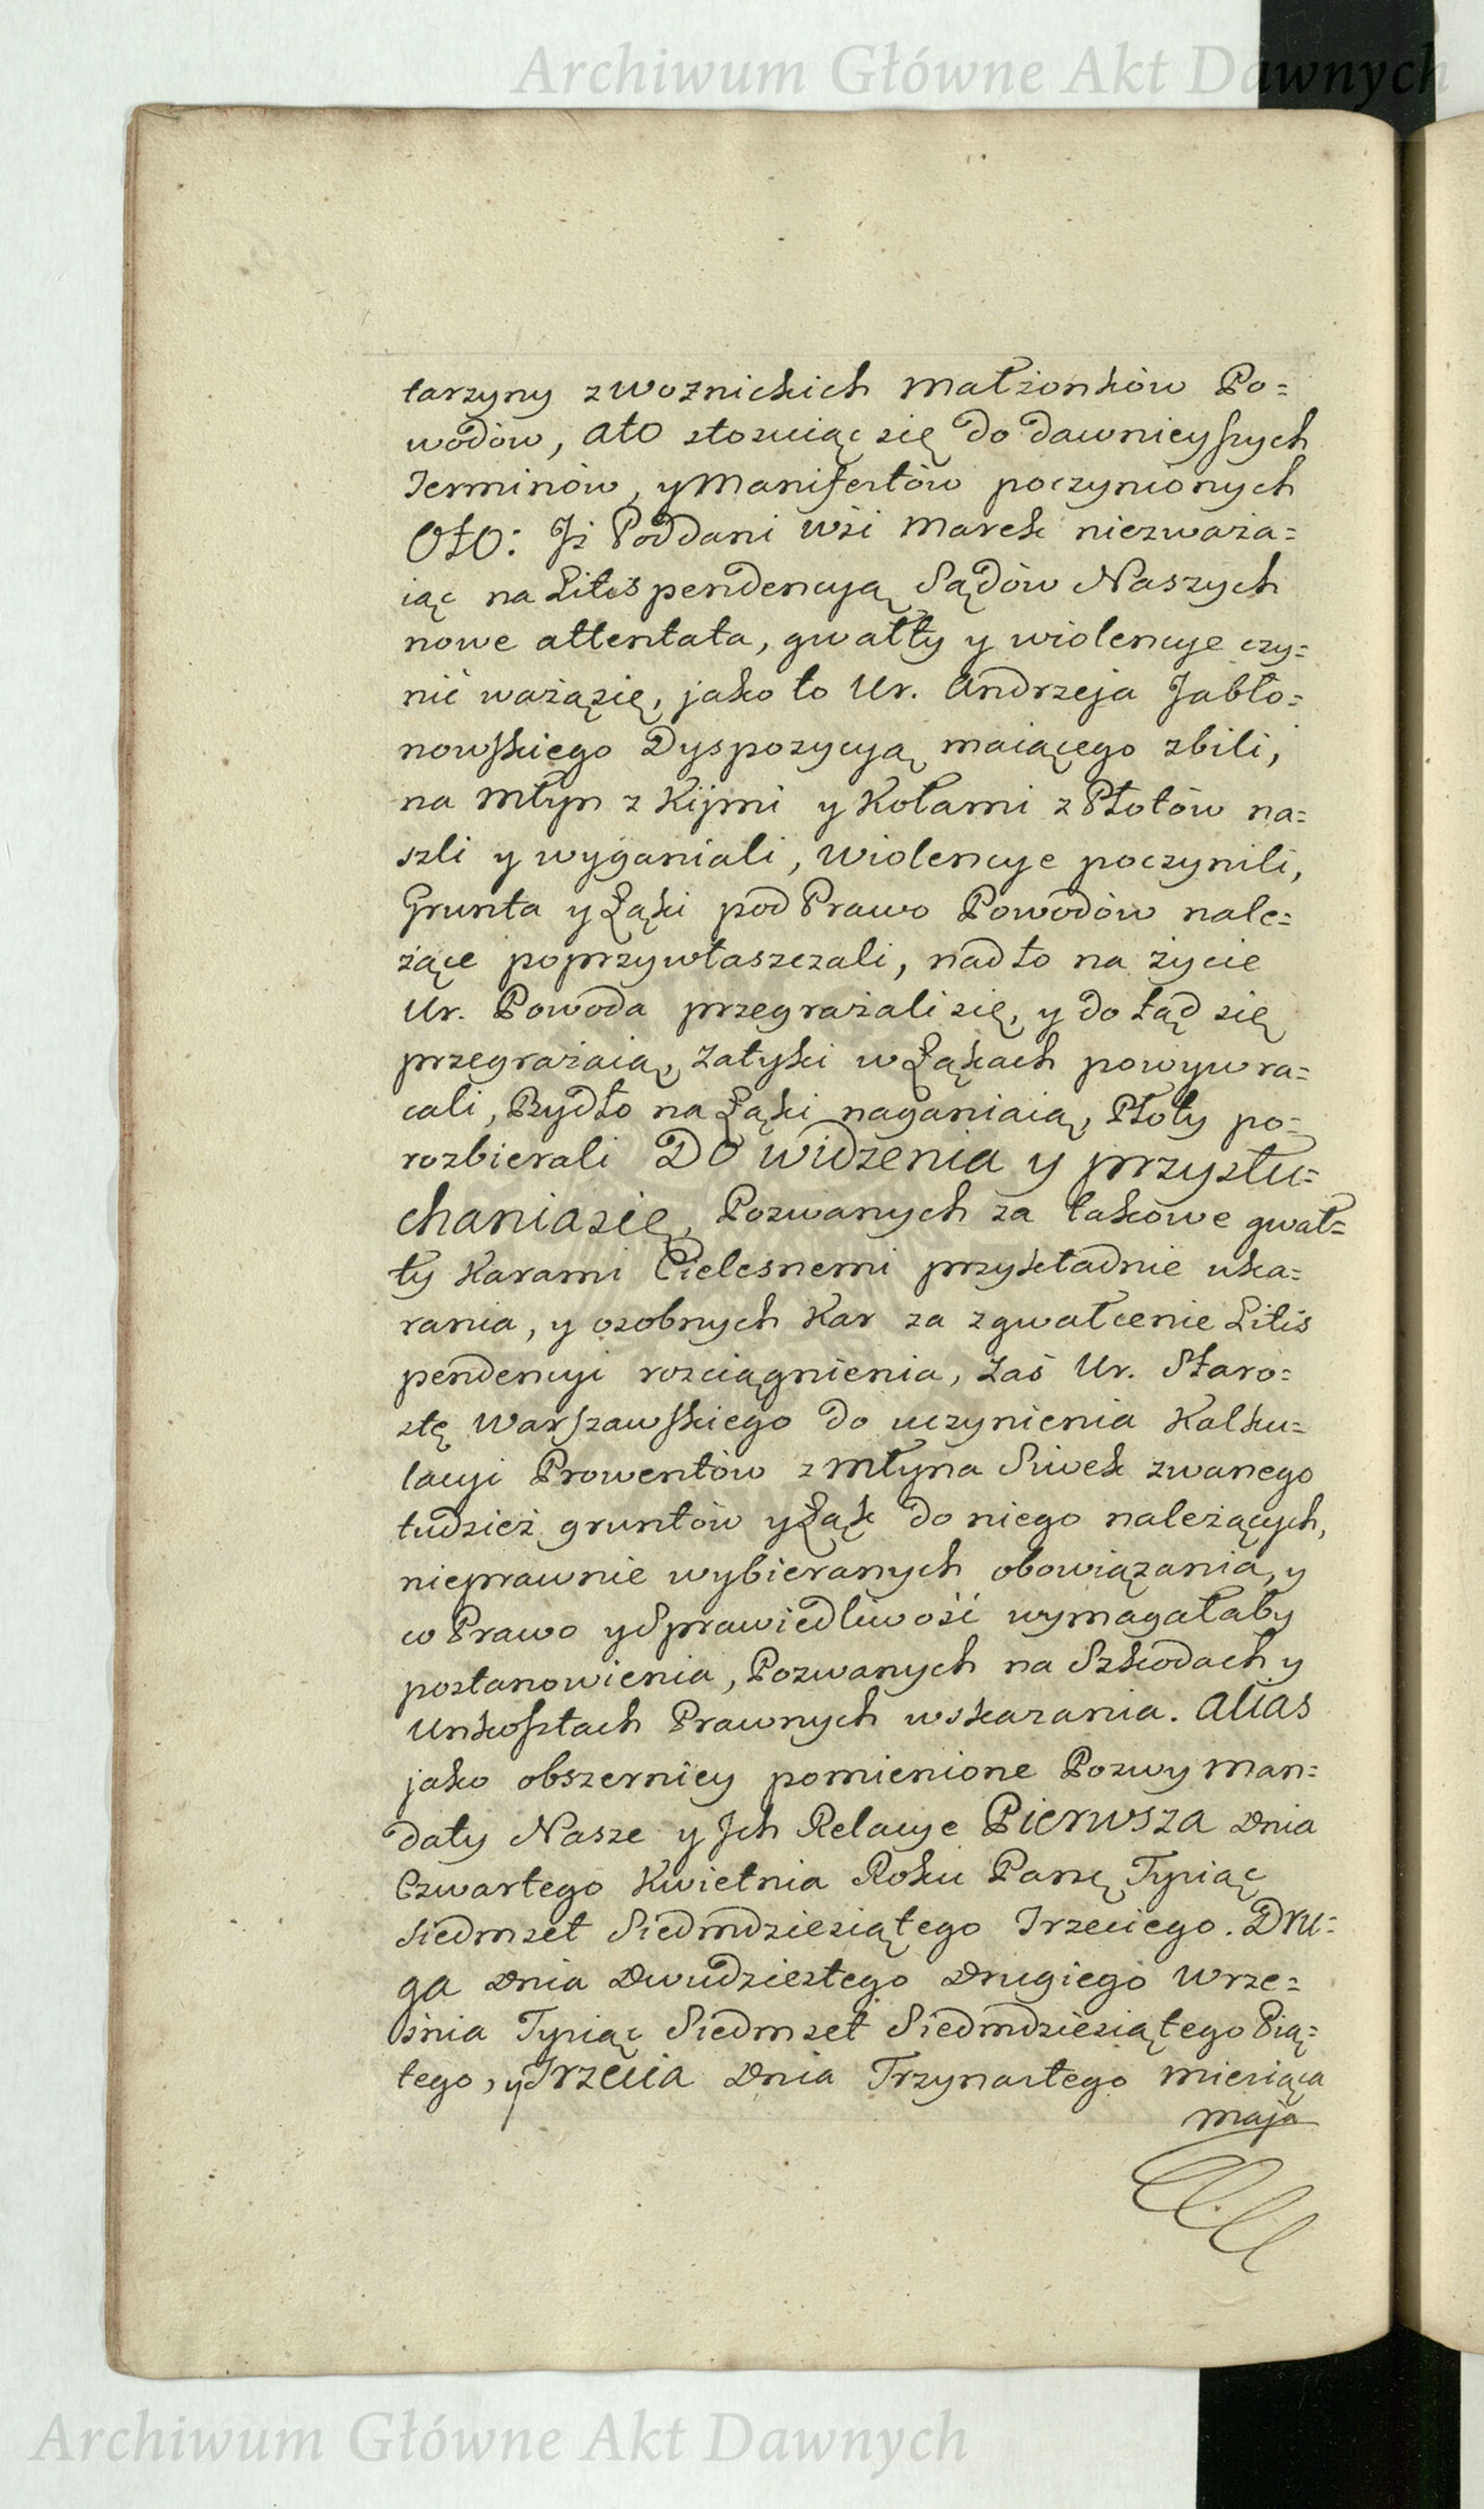 Archiwum Główne Akt Dawnych
tarzyny z Woznickich Małżonków Po=
wodów, Ato stosuiąc się do dawnieyszych
Terminów, y Manifestów poczynionych
Oto: Iż Poddani Wsi Marek niezważa=
iąc na Litis pendencyą Sądów Naszych
nowe attentata, gwałty y wiolencye czy=
nić ważą się, jako to Ur. Andrzeja Jabło=
nowskiego Dyspozycyą maiącego zbili,
na Młyn z Kijmi y Kołami z Płotów na=
szli y wyganiali, wiolencye poczynili,
Grunta y Łąki pod Prawo Powodów nale=
żące poprzywłaszczali, nad to na życie
Ur. Powoda przegrażali się, y do tąd się
przegrażaią, Zatyki w Łąkach powywra=
cali, Bydło na Łąki naganiaią, Płoty po=
rozbierali Do widzenia y przysłu=
chania się, Pozwanych za takowe gwał=
ty Karami Cielesnemi przykładnie uka=
rania, y osobnych Kar za zgwałcenie Litis
pendencyi rozciągnienia, Zaś Ur. Staro=
stę Warszawskiego do uczynienia Kalku=
lacyi Prowentów z Młyna Siwek zwanego
tudzież gruntów y Łąk do niego należących,
nieprawnie wybieranych obowiązania, y
co Prawo y Sprawiedliwość wymagałaby
postanowienia, Pozwanych na Szkodach y
Unkosztach Prawnych wskazania. Alias
jako obszerniey pomienione Pozwy Man=
daty Nasze y Ich Relacye Pierwsza Dnia
Czwartego Kwietnia Roku Pańsę Tysiąc
Siedmset Siedmdziesiątego Trzeciego. Dru=
ga Dnia Dwudziestego Drugiego Wrze=
śnia Tysiąc Siedmset Siedmdziesiątego Pią=
tego, y Trzecia Dnia Trzynastego Miesiąca
Maja
Archiwum Główne Akt Dawnych